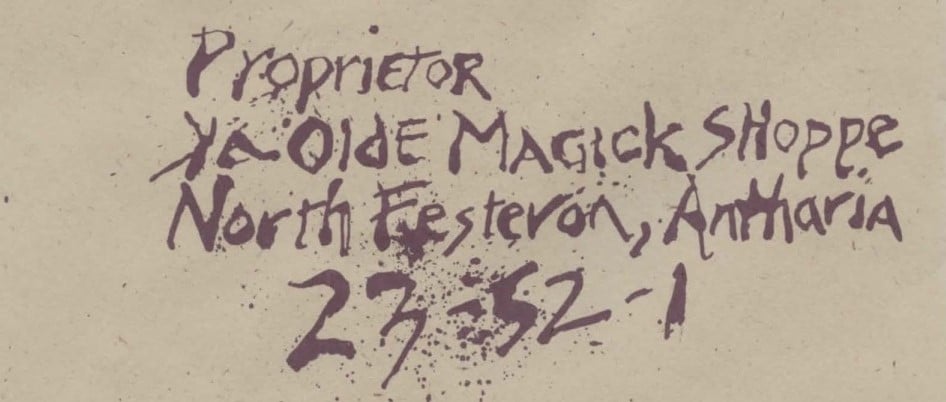 Proprietor
Ya Olde Magick Shoppe
North Festeron, Antharia
23-52-1